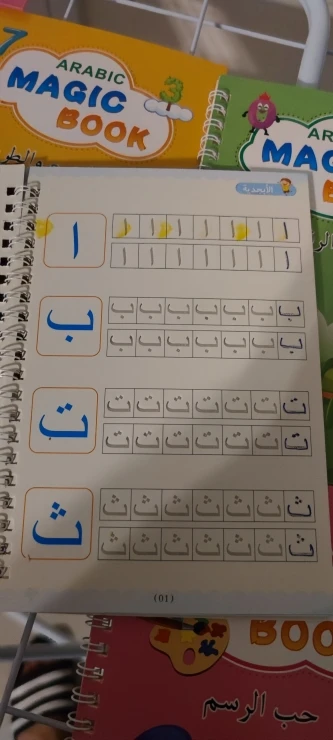 7
ARABIC
MAGIC
BOOK
3
AR
MAG
الأبجدية
ا ا ا ا ا ا ا
ا
ا ا ا ا ا ا ا
ب ب ب ب ب ب ب
ب
ب ب ب ب ب ب ب
ت ت ت ت ت ت ت
ت
ت ت ت ت ت ت ت
ث ث ث ث ث ث ث
ث
ث ث ث ث ث ث ث
(01)
BOO
حب الرسم